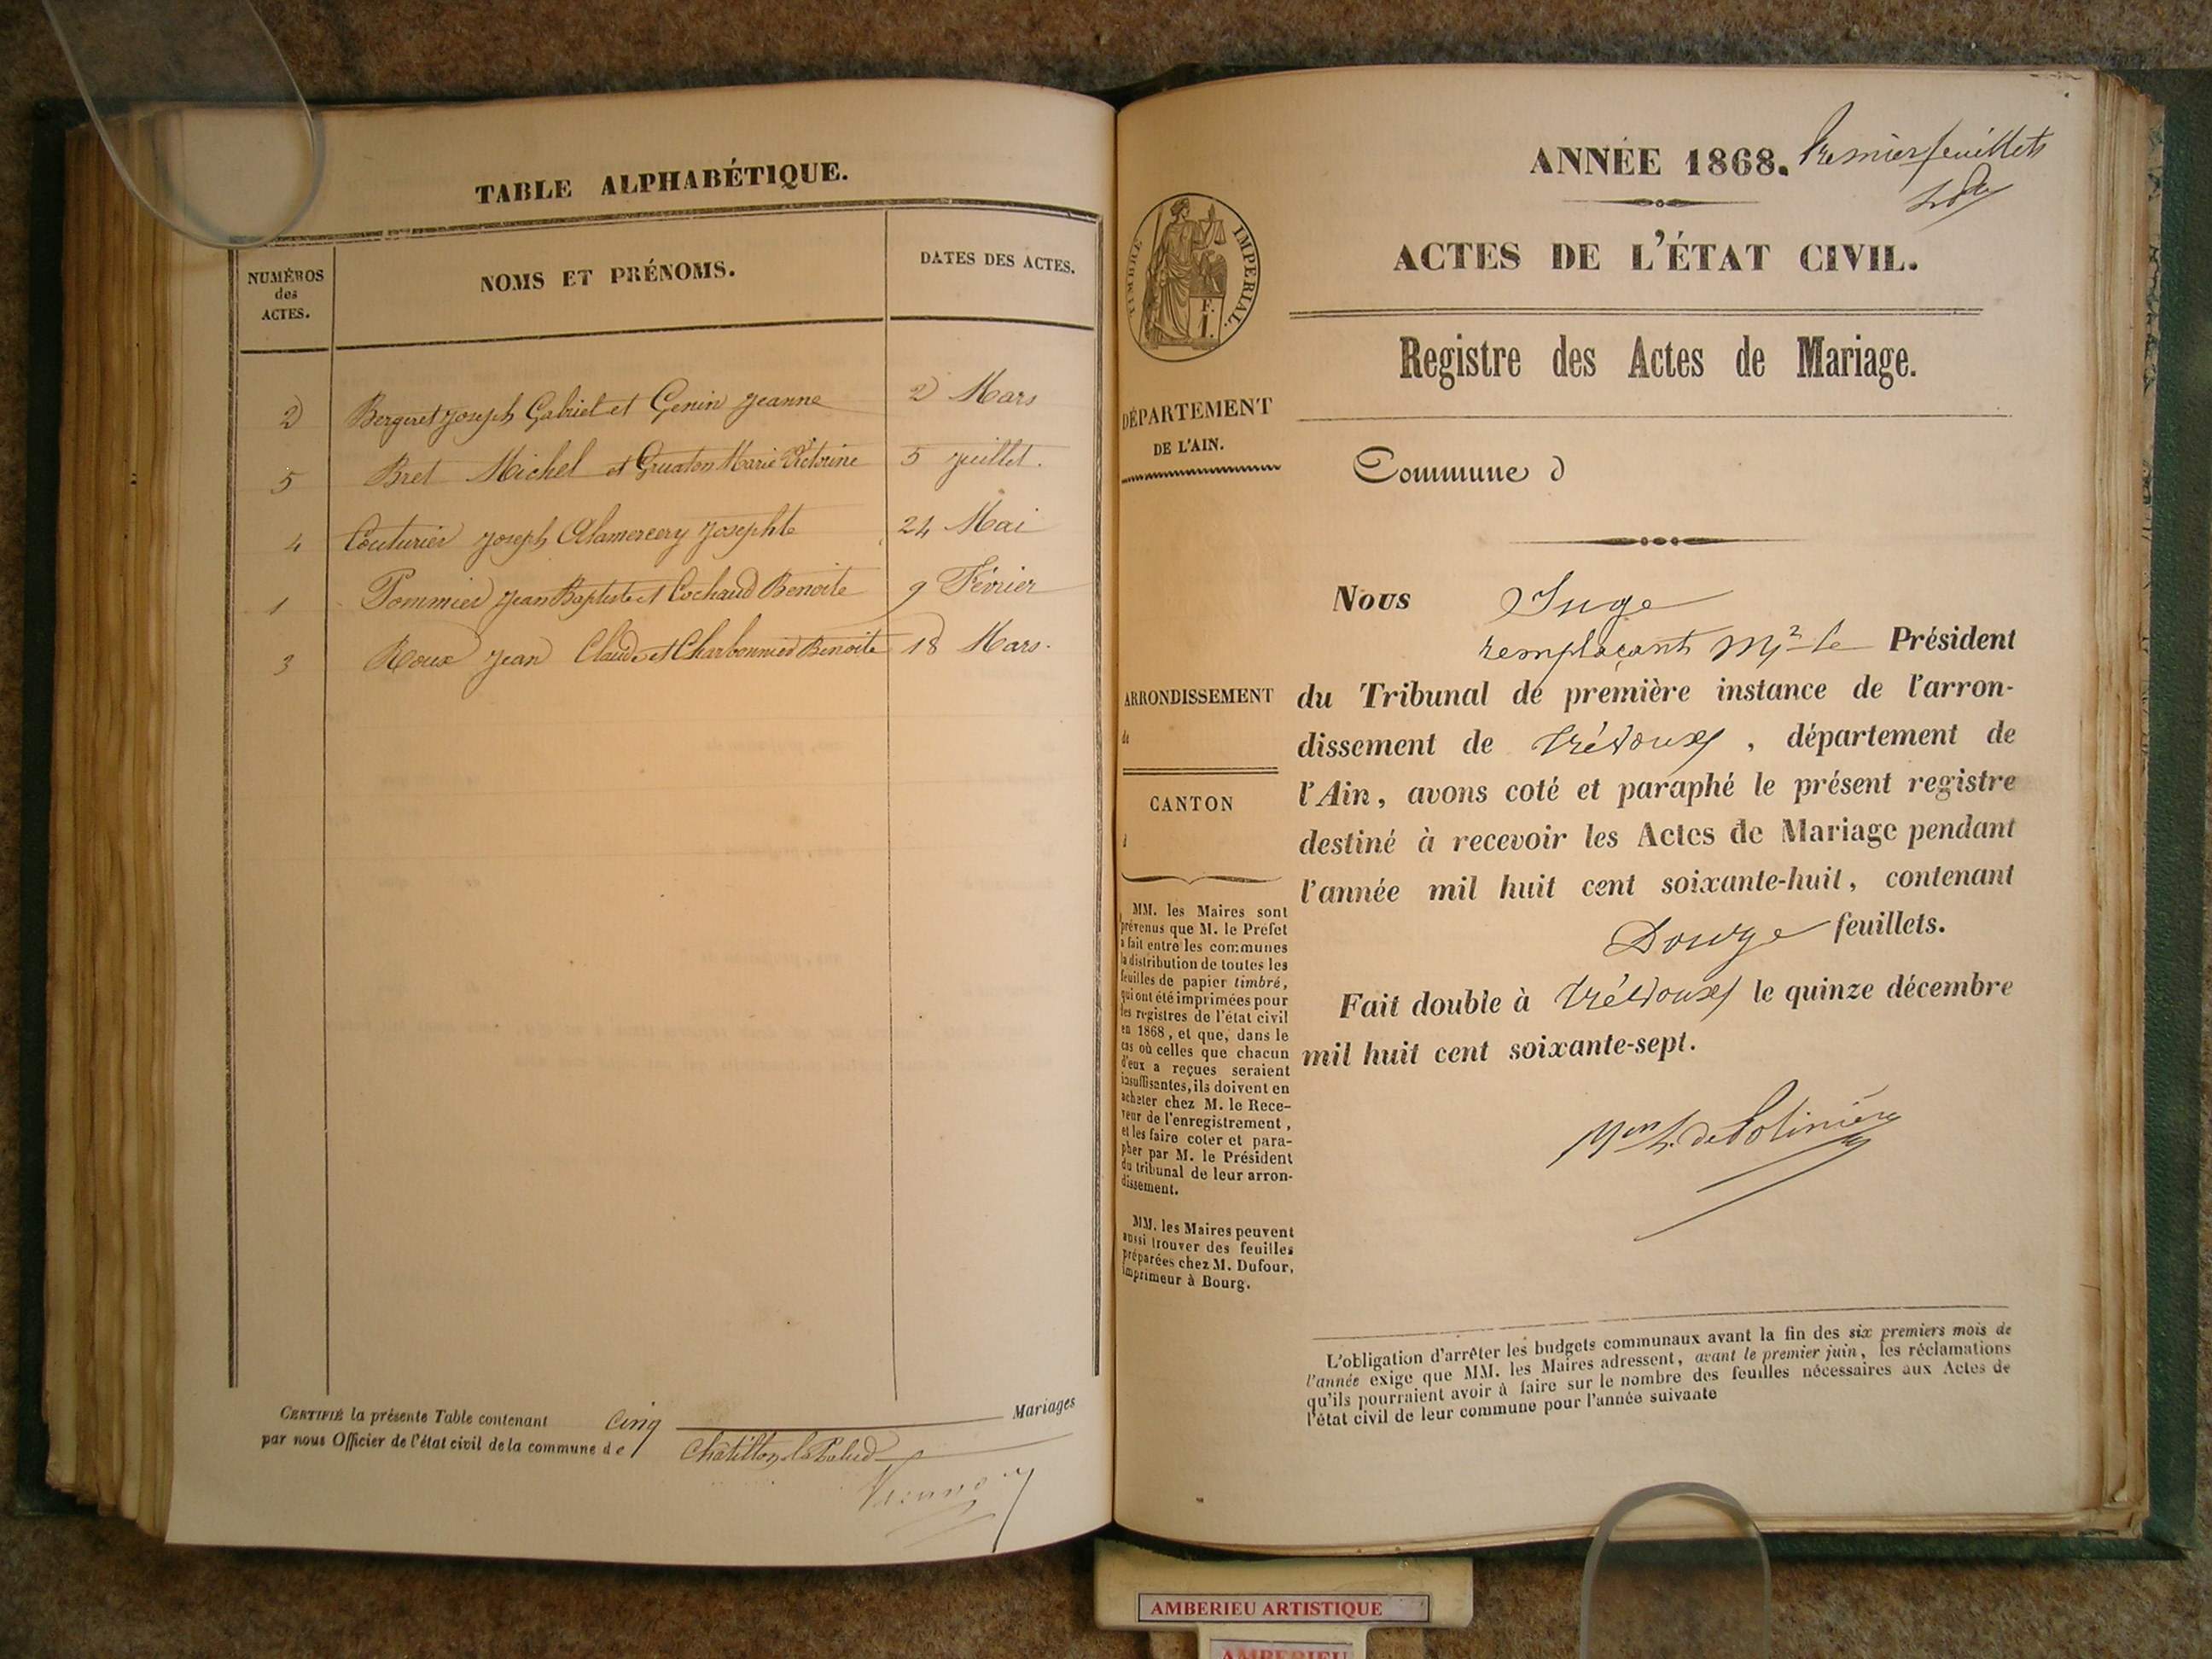 TABLE ALPHABÉTIQUE.
NUMÉROS
des
ACTES.
NOMS ET PRÉNOMS.
DATES DES ACTES.
2 Bergeret Joseph Gabriel et Genin Jeanne 2 Mars
5 Bret Michel et Gruaton Marie Victorine 5 Juillet.
4 Couturier Joseph Alamercery Josephte 24 Mai
1 Pommier Jean Baptiste et Cochaud Benoite 9 Février
3 Roux Jean Claude et Charbonnier Benoite 18 Mars.
CERTIFIÉ la présente Table contenant cinq Mariages
par nous Officier de l'état civil de la commune de Châtillon la Palud
ANNÉE 1868. Premier feuillet
ACTES DE L'ÉTAT CIVIL.
TIMBRE IMPERIAL.
F.
1.
Registre des Actes de Mariage.
DÉPARTEMENT
DE L'AIN.
Commune d
Nous Juge
remplaçant Mr le Président
ARRONDISSEMENT
de
CANTON
d
du Tribunal de première instance de l'arron-
dissement de Trévoux, département de
l'Ain, avons coté et paraphé le présent registre
destiné à recevoir les Actes de Mariage pendant
l'année mil huit cent soixante-huit, contenant
Douze feuillets.
Fait double à Trévoux le quinze décembre
mil huit cent soixante-sept.
MM. les Maires sont
prévenus que M. le Préfet
a fait entre les communes
la distribution de toutes les
feuilles de papier timbré,
qui ont été imprimées pour
les registres de l'état civil
en 1868, et que, dans le
cas où celles que chacun
d'eux a reçues seraient
insuffisantes, ils doivent en
acheter chez M. le Rece-
veur de l'enregistrement,
et les faire coter et para-
pher par M. le Président
du tribunal de leur arron-
dissement.
MM. les Maires peuvent
aussi trouver des feuilles
préparées chez M. Dufour,
imprimeur à Bourg.
L'obligation d'arrêter les budgets communaux avant la fin des six premiers mois de
l'année exige que MM. les Maires adressent, avant le premier juin, les réclamations
qu'ils pourraient avoir à faire sur le nombre des feuilles nécessaires aux Actes de
l'état civil de leur commune pour l'année suivante
AMBERIEU ARTISTIQUE
AMBERIEU